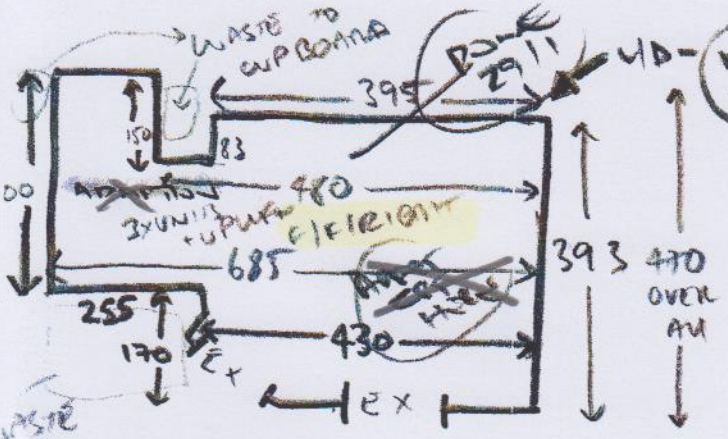 WASTE TO
CUPBOARD
DONE
29/11
395
150
83
00
480
3xUNITS
F/F/RIGHT
685
393
470
OVER
ALL
255
170
EX
430
EX
WASTE